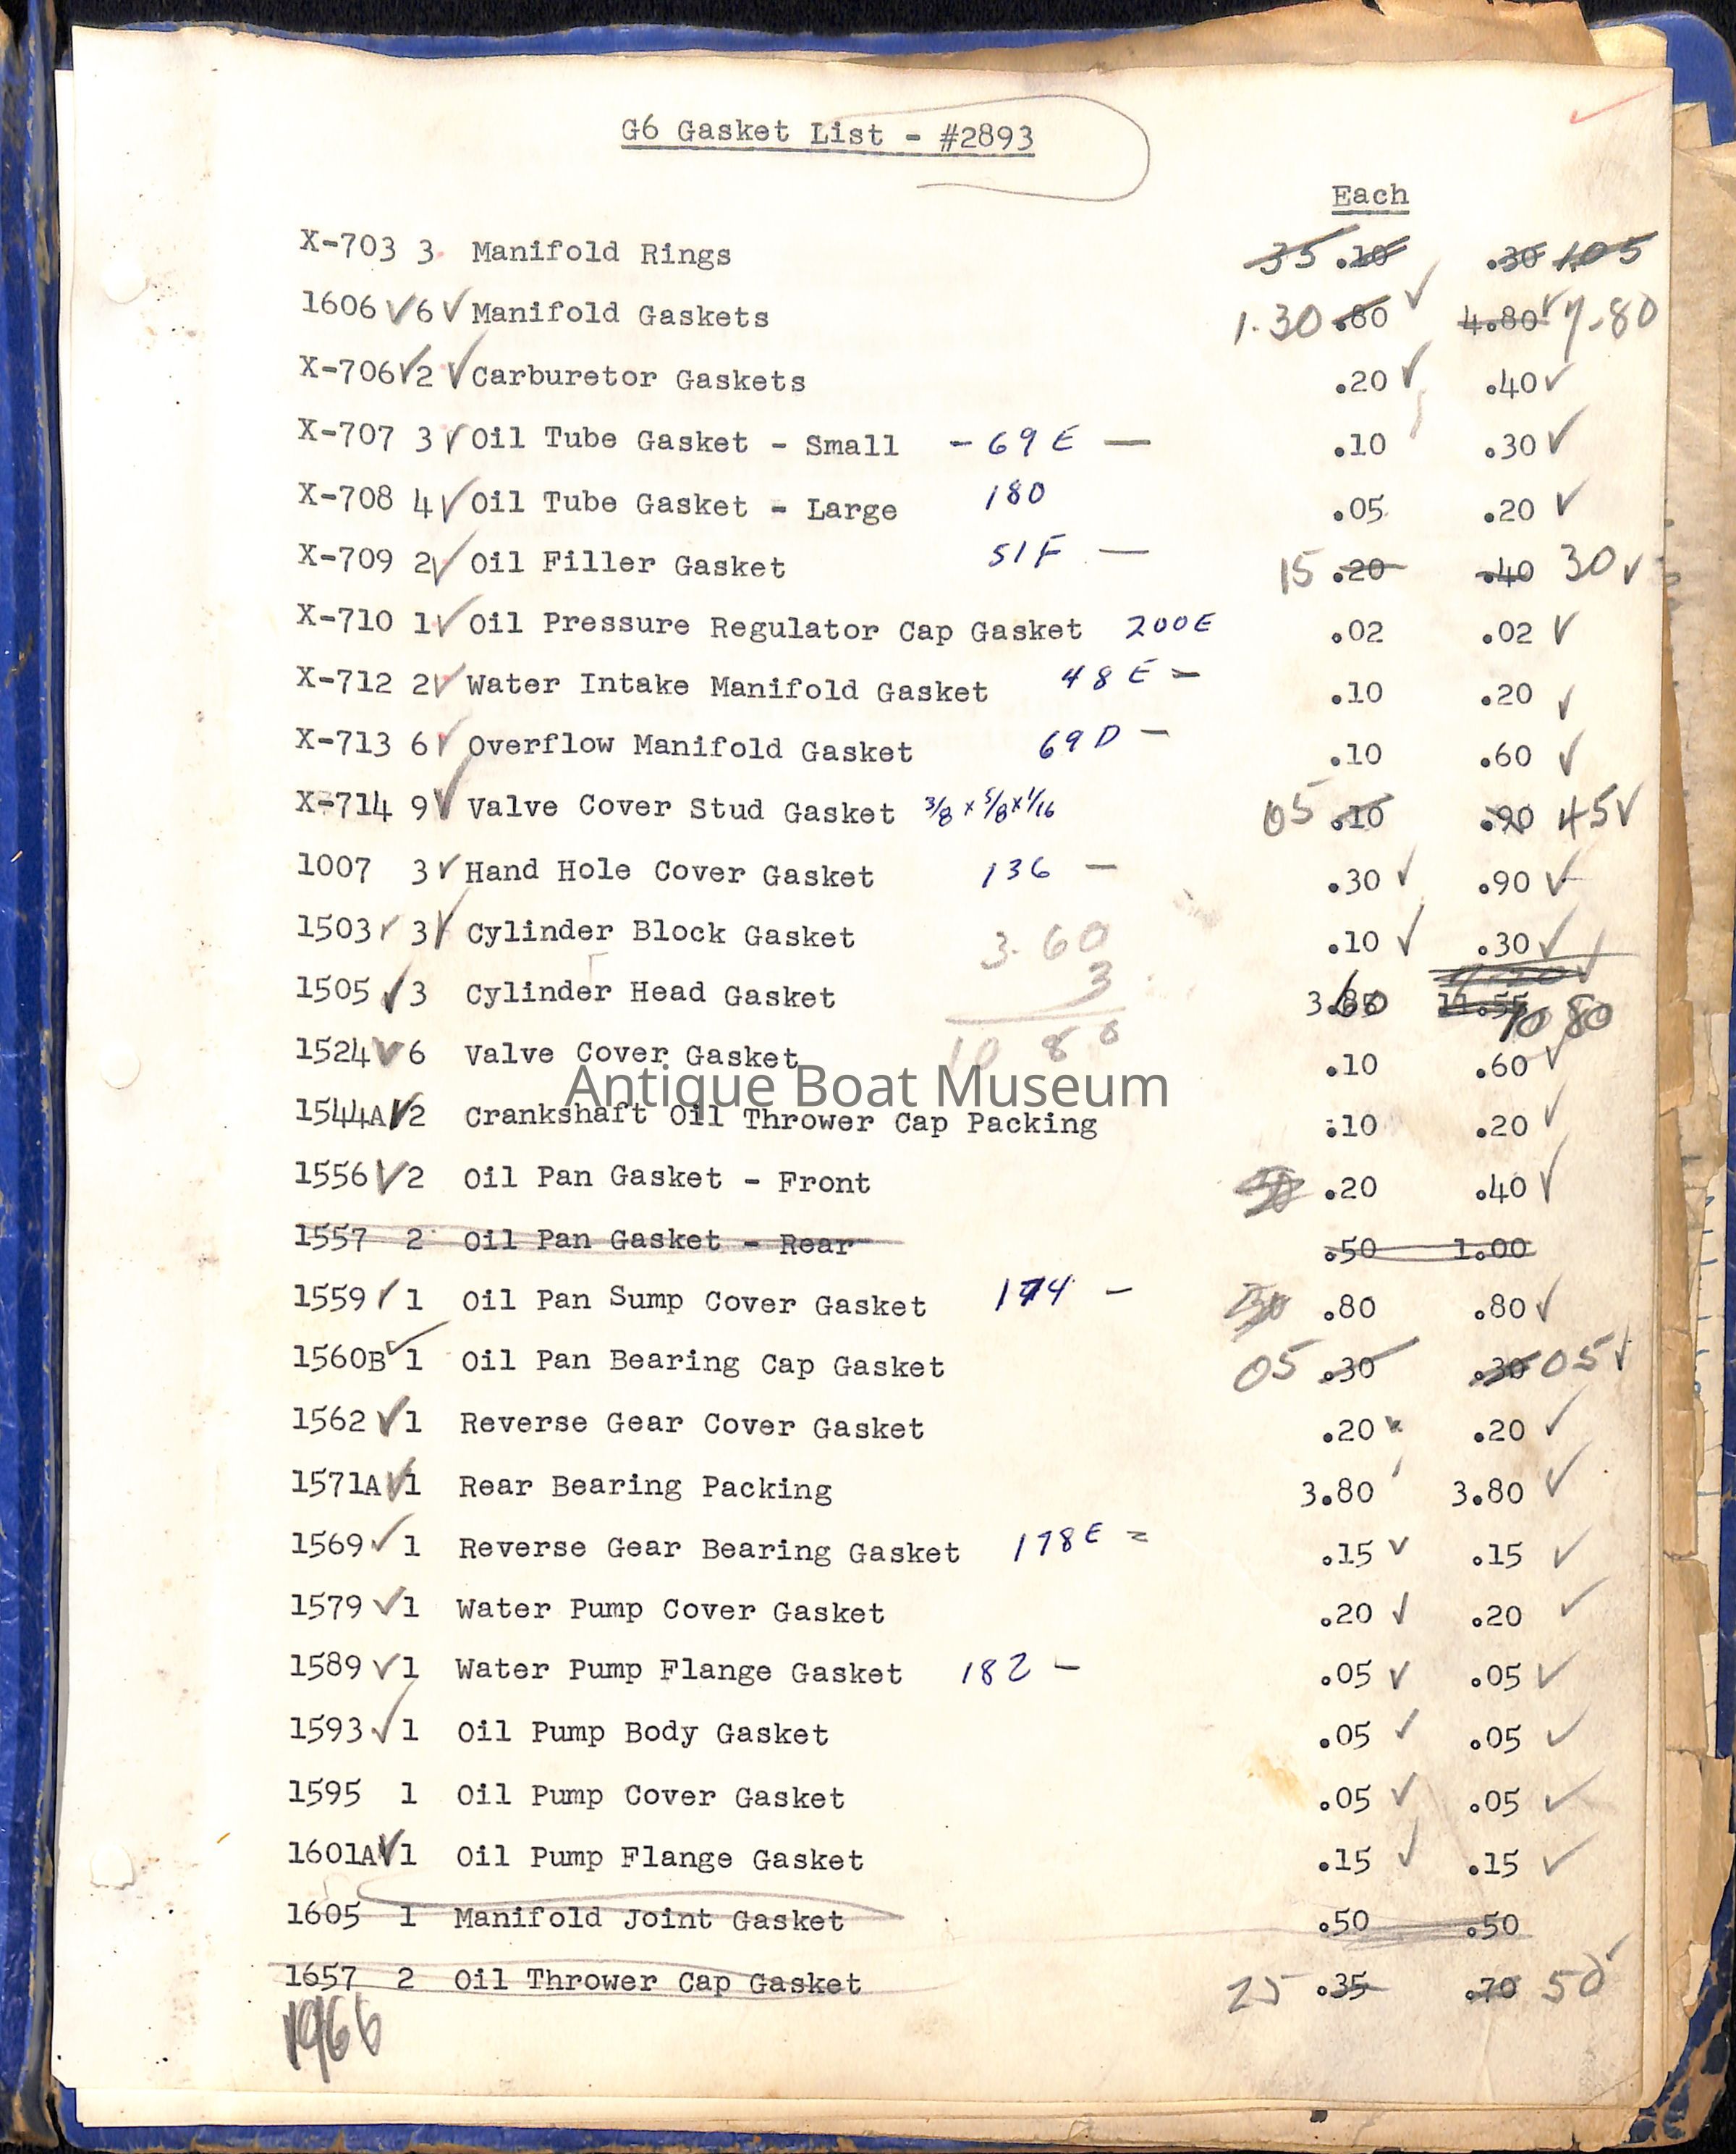 G6 Gasket List - #2893
Each
X-703 3 Manifold Rings 35 .10 .30 1.05
1606 ✓ 6 ✓ Manifold Gaskets 1.30 .80 ✓ 4.80 ✓ 7.80
X-706 ✓ 2 ✓ Carburetor Gaskets .20 ✓ .40 ✓
X-707 3 ✓ Oil Tube Gasket - Small - 69E — .10 .30 ✓
X-708 4 ✓ Oil Tube Gasket - Large 180 .05 .20 ✓
X-709 2 ✓ Oil Filler Gasket 51F — 15 .20 .40 30 ✓
X-710 1 ✓ Oil Pressure Regulator Cap Gasket 200E .02 .02 ✓
X-712 2 ✓ Water Intake Manifold Gasket 48E - .10 .20 ✓
X-713 6 ✓ Overflow Manifold Gasket 69D - .10 .60 ✓
X-714 9 ✓ Valve Cover Stud Gasket 3/8 x 5/8 x 1/16 05 .10 .90 45 ✓
1007 3 ✓ Hand Hole Cover Gasket 136 - .30 ✓ .90 ✓
1503 ✓ 3 ✓ Cylinder Block Gasket .10 ✓ .30 ✓
3.60
3
10 80
1505 ✓ 3 Cylinder Head Gasket 3.60 11.55 10 80
1524 ✓ 6 Valve Cover Gasket .10 .60 ✓
Antique Boat Museum
1544A ✓ 2 Crankshaft Oil Thrower Cap Packing .10 .20 ✓
1556 ✓ 2 Oil Pan Gasket - Front .20 .40 ✓
1557 2 Oil Pan Gasket - Rear .50 1.00
1559 ✓ 1 Oil Pan Sump Cover Gasket 174 - .80 .80 ✓
1560B ✓ 1 Oil Pan Bearing Cap Gasket 05 .30 .30 05 ✓
1562 ✓ 1 Reverse Gear Cover Gasket .20 .20 ✓
1571A ✓ 1 Rear Bearing Packing 3.80 3.80 ✓
1569 ✓ 1 Reverse Gear Bearing Gasket 178E = .15 ✓ .15 ✓
1579 ✓ 1 Water Pump Cover Gasket .20 ✓ .20 ✓
1589 ✓ 1 Water Pump Flange Gasket 182 - .05 ✓ .05 ✓
1593 ✓ 1 Oil Pump Body Gasket .05 ✓ .05 ✓
1595 1 Oil Pump Cover Gasket .05 ✓ .05 ✓
1601A ✓ 1 Oil Pump Flange Gasket .15 ✓ .15 ✓
1605 1 Manifold Joint Gasket .50 .50
1657 2 Oil Thrower Cap Gasket 25 .35 .70 50 ✓
1966